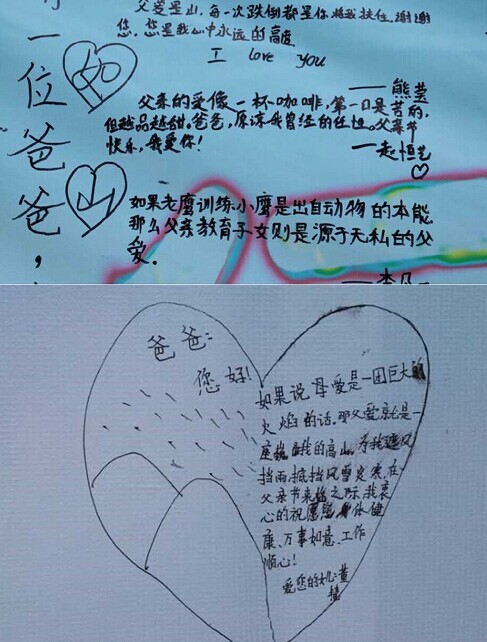 一位爸爸，
父爱是山，每一次跌倒都是你将我扶住，谢谢
您，您是我心中永远的高度
I love you
——熊莹
如
父亲的爱像一杯咖啡，第一口是苦的，
但越品越甜。爸爸，原谅我曾经的任性。父亲节
快乐，我爱你！
一赵恒艺
山
如果老鹰训练小鹰是出自动物的本能
那么父亲教育子女则是源于无私的父
爱。
爸爸：
您好！
如果说母爱是一团巨大的
火焰的话。那父爱就是一
座 的高山，为我遮风
挡雨，抵挡风雪 寒，在
父亲节来临之际，我衷
心的祝愿您身体健
康、万事如意、工作
顺心！
爱您的女儿：董
慧